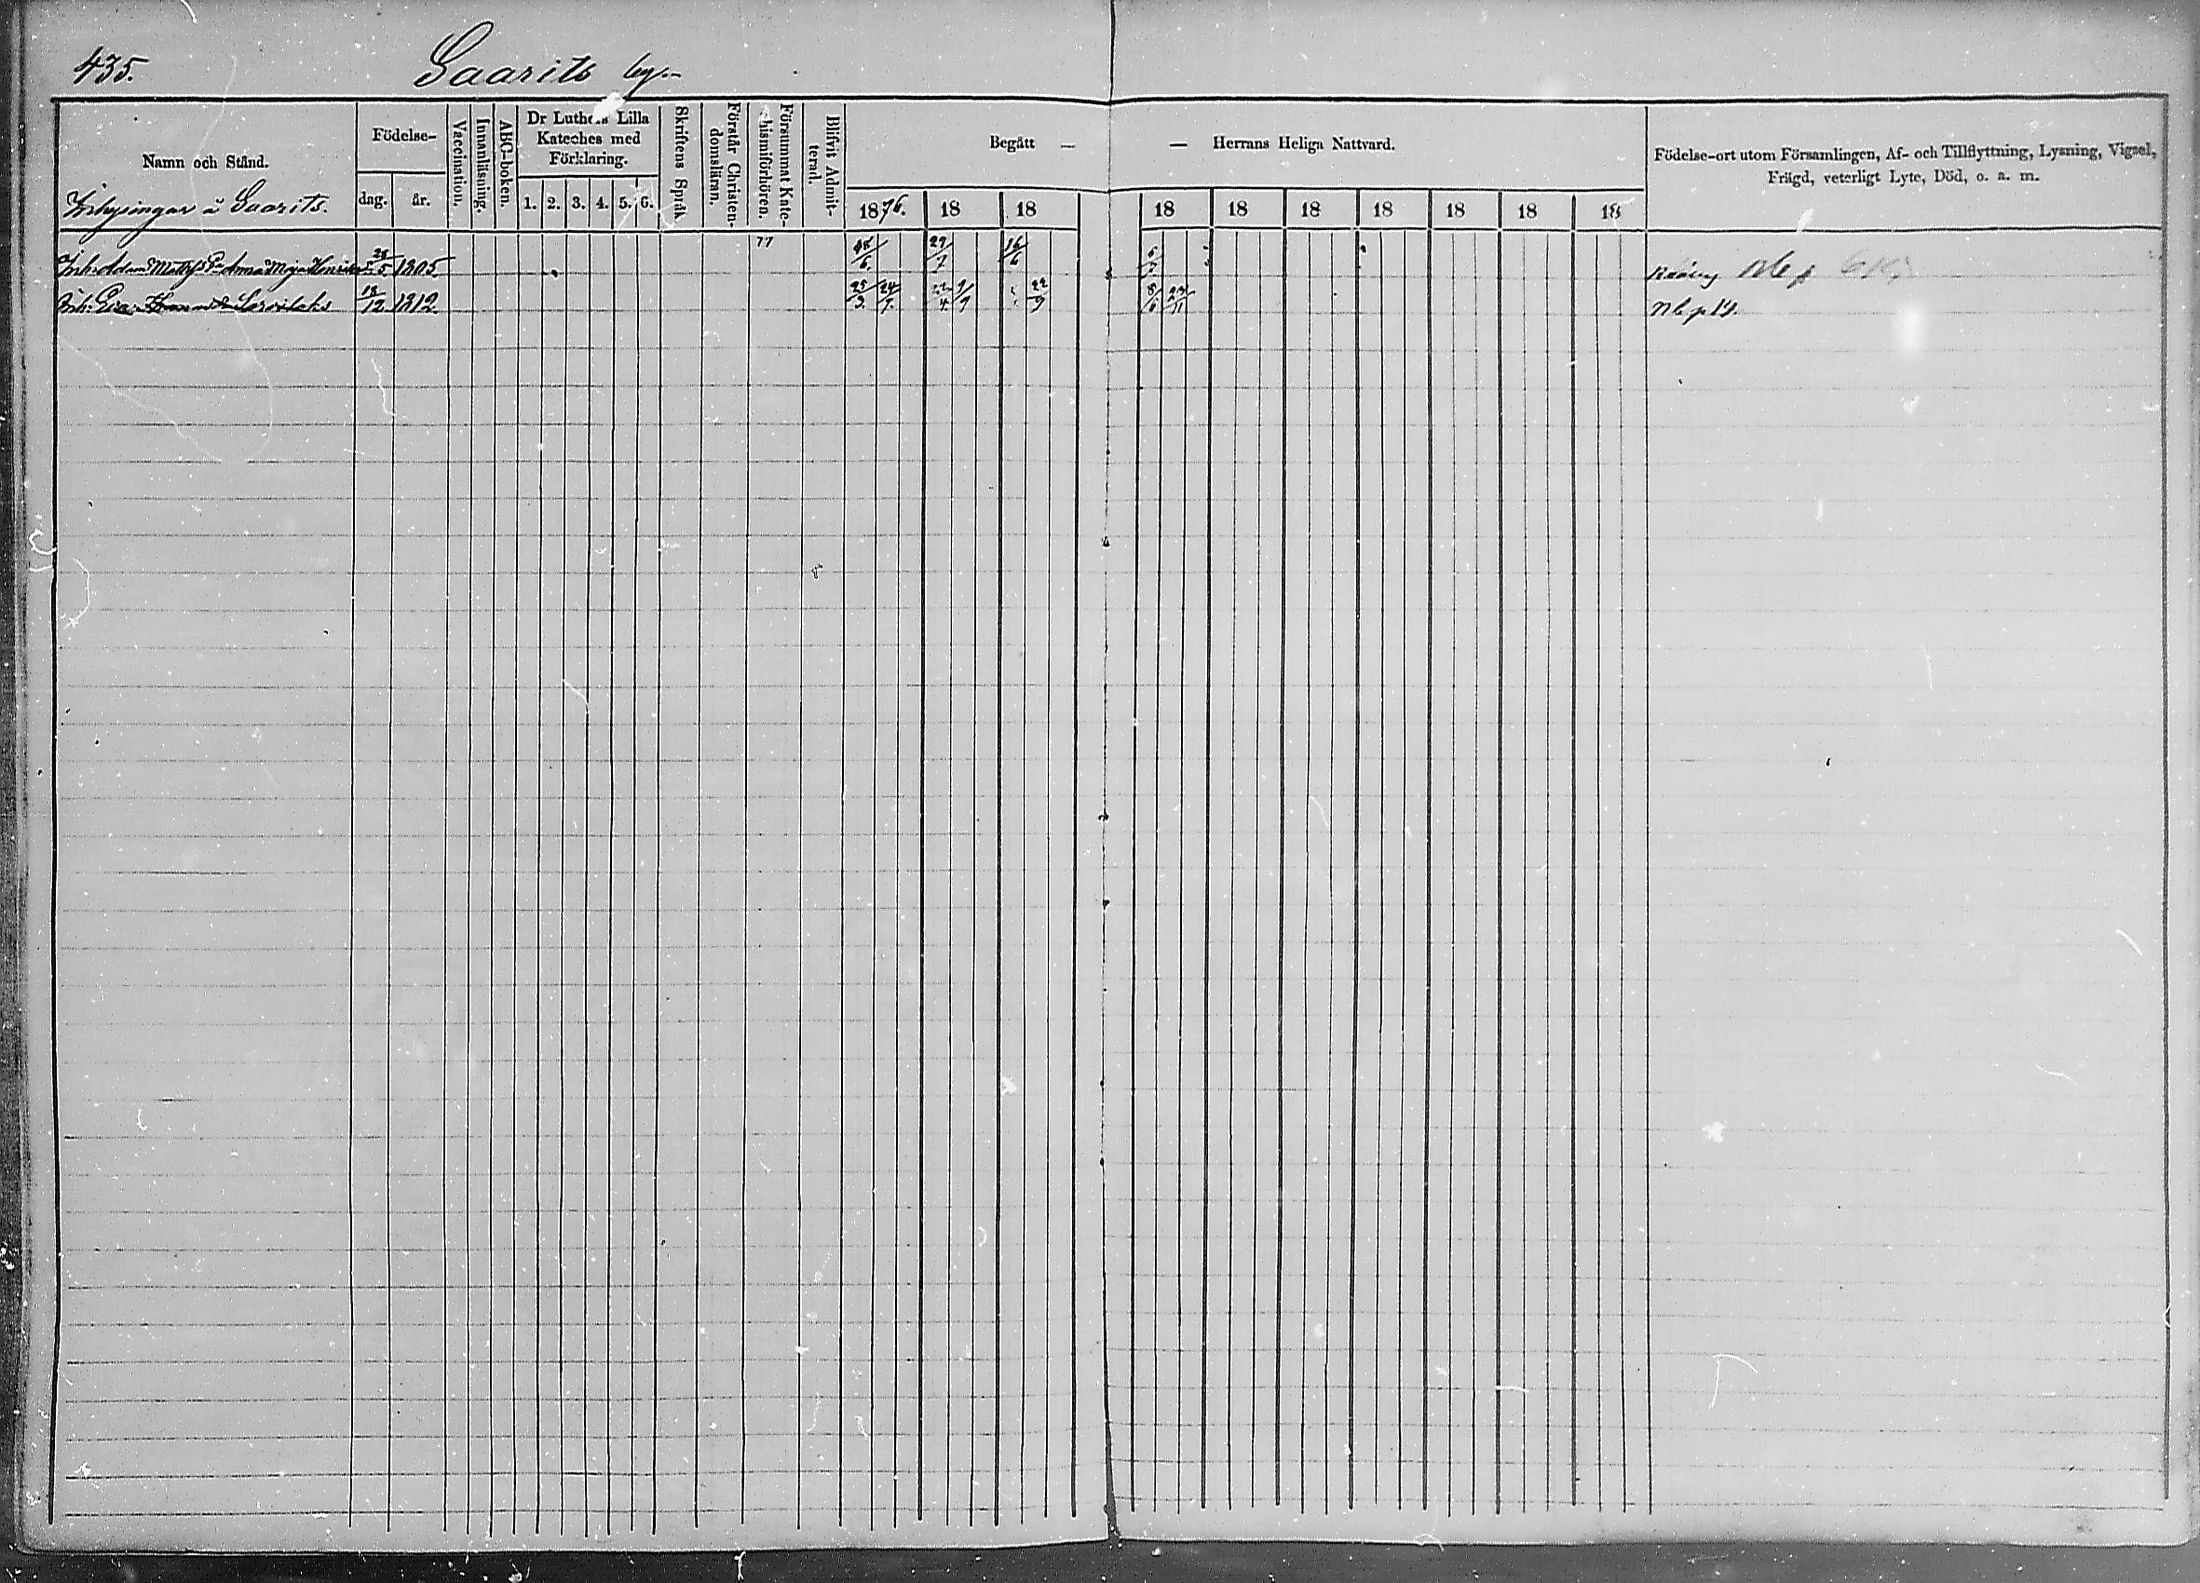 435. Saarits by.
Namn och Stånd.
Födelse-
dag. år.
Vaccination.
Innanläsning.
ABC-boken.
Dr Luthers Lilla
Kateches med
Förklaring.
1. 2. 3. 4. 5. 6.
Skriftens Språk
Förstår Christen-
domsläran.
Försummat Kate-
chismiförhören.
Blifvit Admit-
terad.
Begått — — Herrans Heliga Nattvard.
1876. 18 18 18 18 18 18 18 18 18
Födelse-ort utom Församlingen, Af- och Tillflyttning, Lysning, Vigsel,
Frägd, veterligt Lyte, Död, o. a. m.
Inhysingar å Saarits.
Inh. Adam Matts Anna Maja Henriks 28/5 1805. 77 18/6 29/7 16/6 6/7
Inh. 18/12 1812. 25/3 24/9 22/4 9/9 22/9 8/6 23/11 Nb p 14.